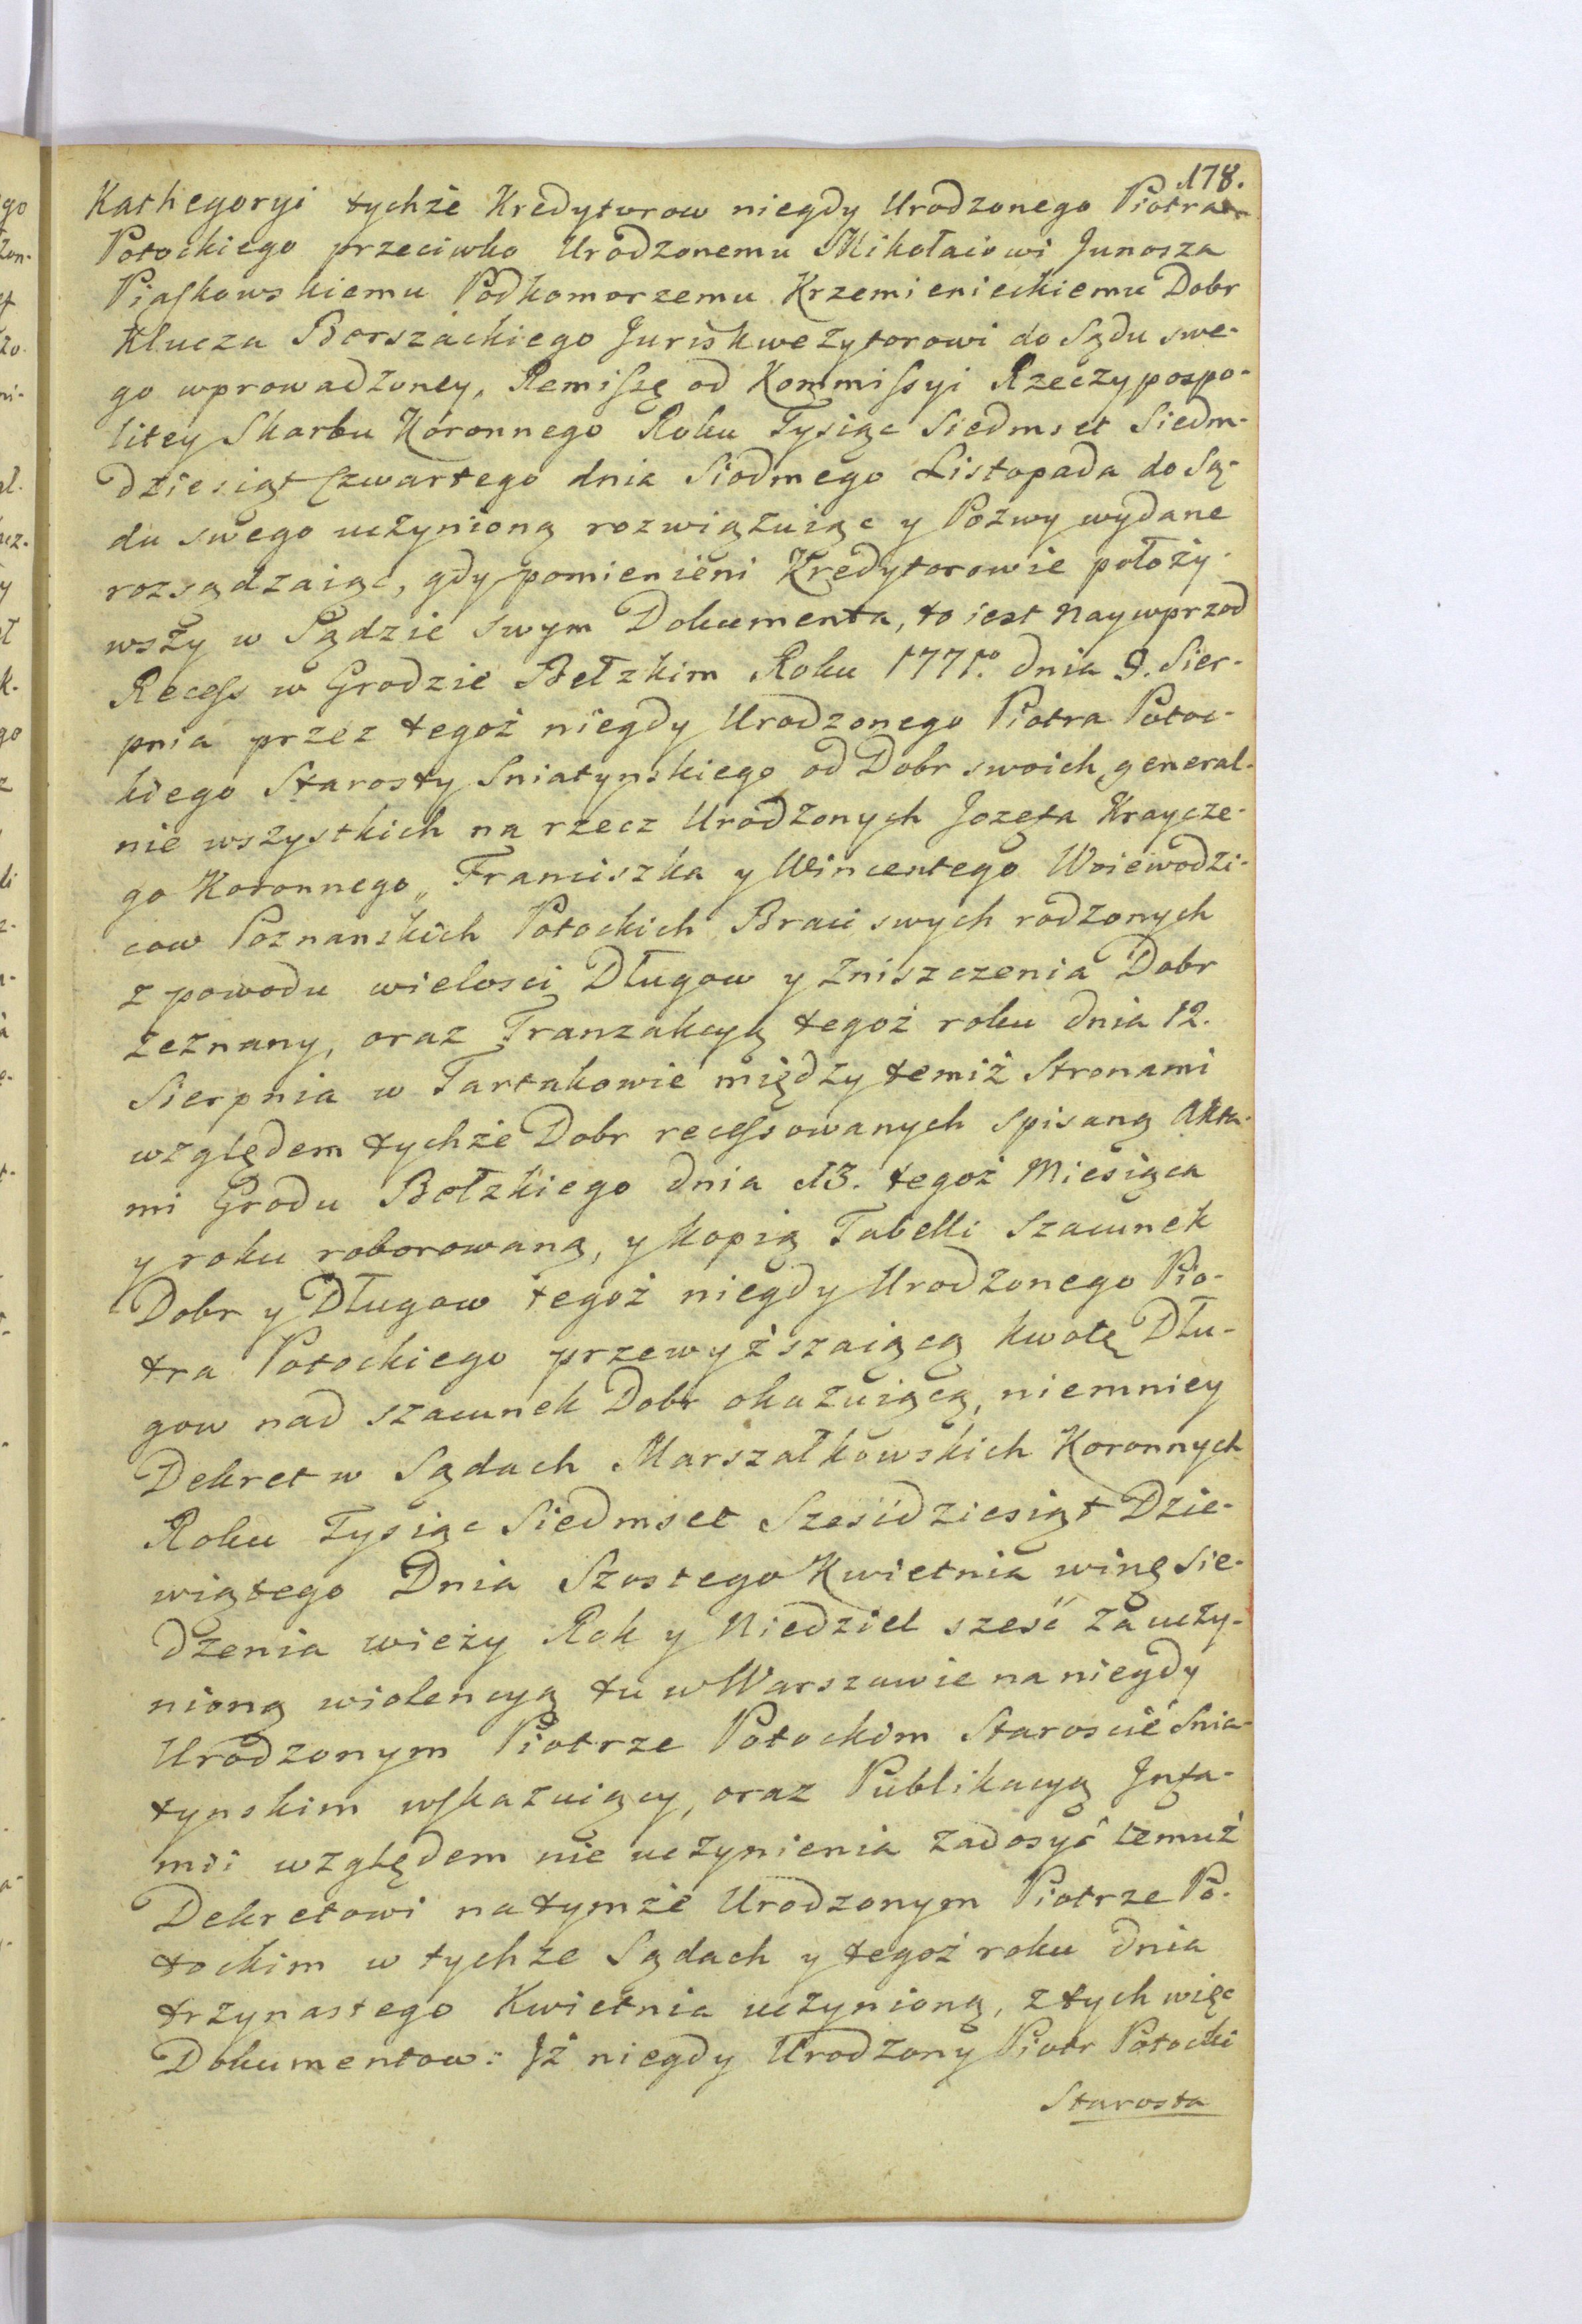 178.
Kathegoryi tychże Kredytorow niegdy Urodzonego Piotra
Potockiego przeciwko Urodzonemu Mikołaiowi Junosza
Piaskowskiemu Podkomorzemu Krzemienieckiemu Dobr
Klucza Borszackiego Juriskwezytorowi do Sądu swe-
go wprowadzoney, Remissę od Kommissyi Rzeczypospo-
litey Skarbu Koronnego Roku Tysiąc Siedmset Siedm-
dziesiąt Czwartego dnia Siodmego Listopada do Są-
du swego uczynioną rozwiązuiąc y Pozwy wydane
rozsądzaiąc, gdy pomienieni Kredytorowie położy-
wszy w Sądzie swym Dokumenta, to iest Naywprzod
Recess w Grodzie Bełzkim Roku 1771º dnia 9. Sier-
pnia przez tegoż niegdy Urodzonego Piotra Potoc-
kiego Starosty Sniatynskiego od Dobr swoich general-
nie wszystkich na rzecz Urodzonych Jozefa Kraycze-
go Koronnego, Franciszka y Wincentego Woiewodzi-
cow Poznanskich Potockich Braci swych rodzonych
z powodu wielosci Długow y Zniszczenia Dobr
zeznany, oraz Tranzakcyą tegoż roku dnia 12.
Sierpnia w Tartakowie między temiż Stronami
względem tychże Dobr recessowanych spisaną Akta-
mi Grodu Bełzkiego dnia 13. tegoż Miesiąca
y roku roborowaną, y kopią Tabelli Szacunek
Dobr y Długow tegoż niegdy Urodzonego Pio-
tra Potockiego przewyższaiącą kwotę Dłu-
gow nad szacunek Dobr okazuiącą, niemniey
Dekret w Sądach Marszałkowskich Koronnych
Roku Tysiąc Siedmset Szesćdziesiąt Dzie-
wiątego Dnia Szostego Kwietnia winę Sie-
dzenia wieży Rok y Niedziel sześć za uczy-
nioną wiolencyą tu w Warszawie na niegdy
Urodzonym Piotrze Potockim Staroscie Snia-
tynskim wskazuiący, oraz Publikacyą Infa-
mii względem nie uczynienia zadosyć temuż
Dekretowi na tymże Urodzonym Piotrze Po-
tockim w tychże Sądach y tegoż roku dnia
trzynastego Kwietnia uczynioną, z tych więc
Dokumentow: Iż niegdy Urodzony Piotr Potocki
Starosta